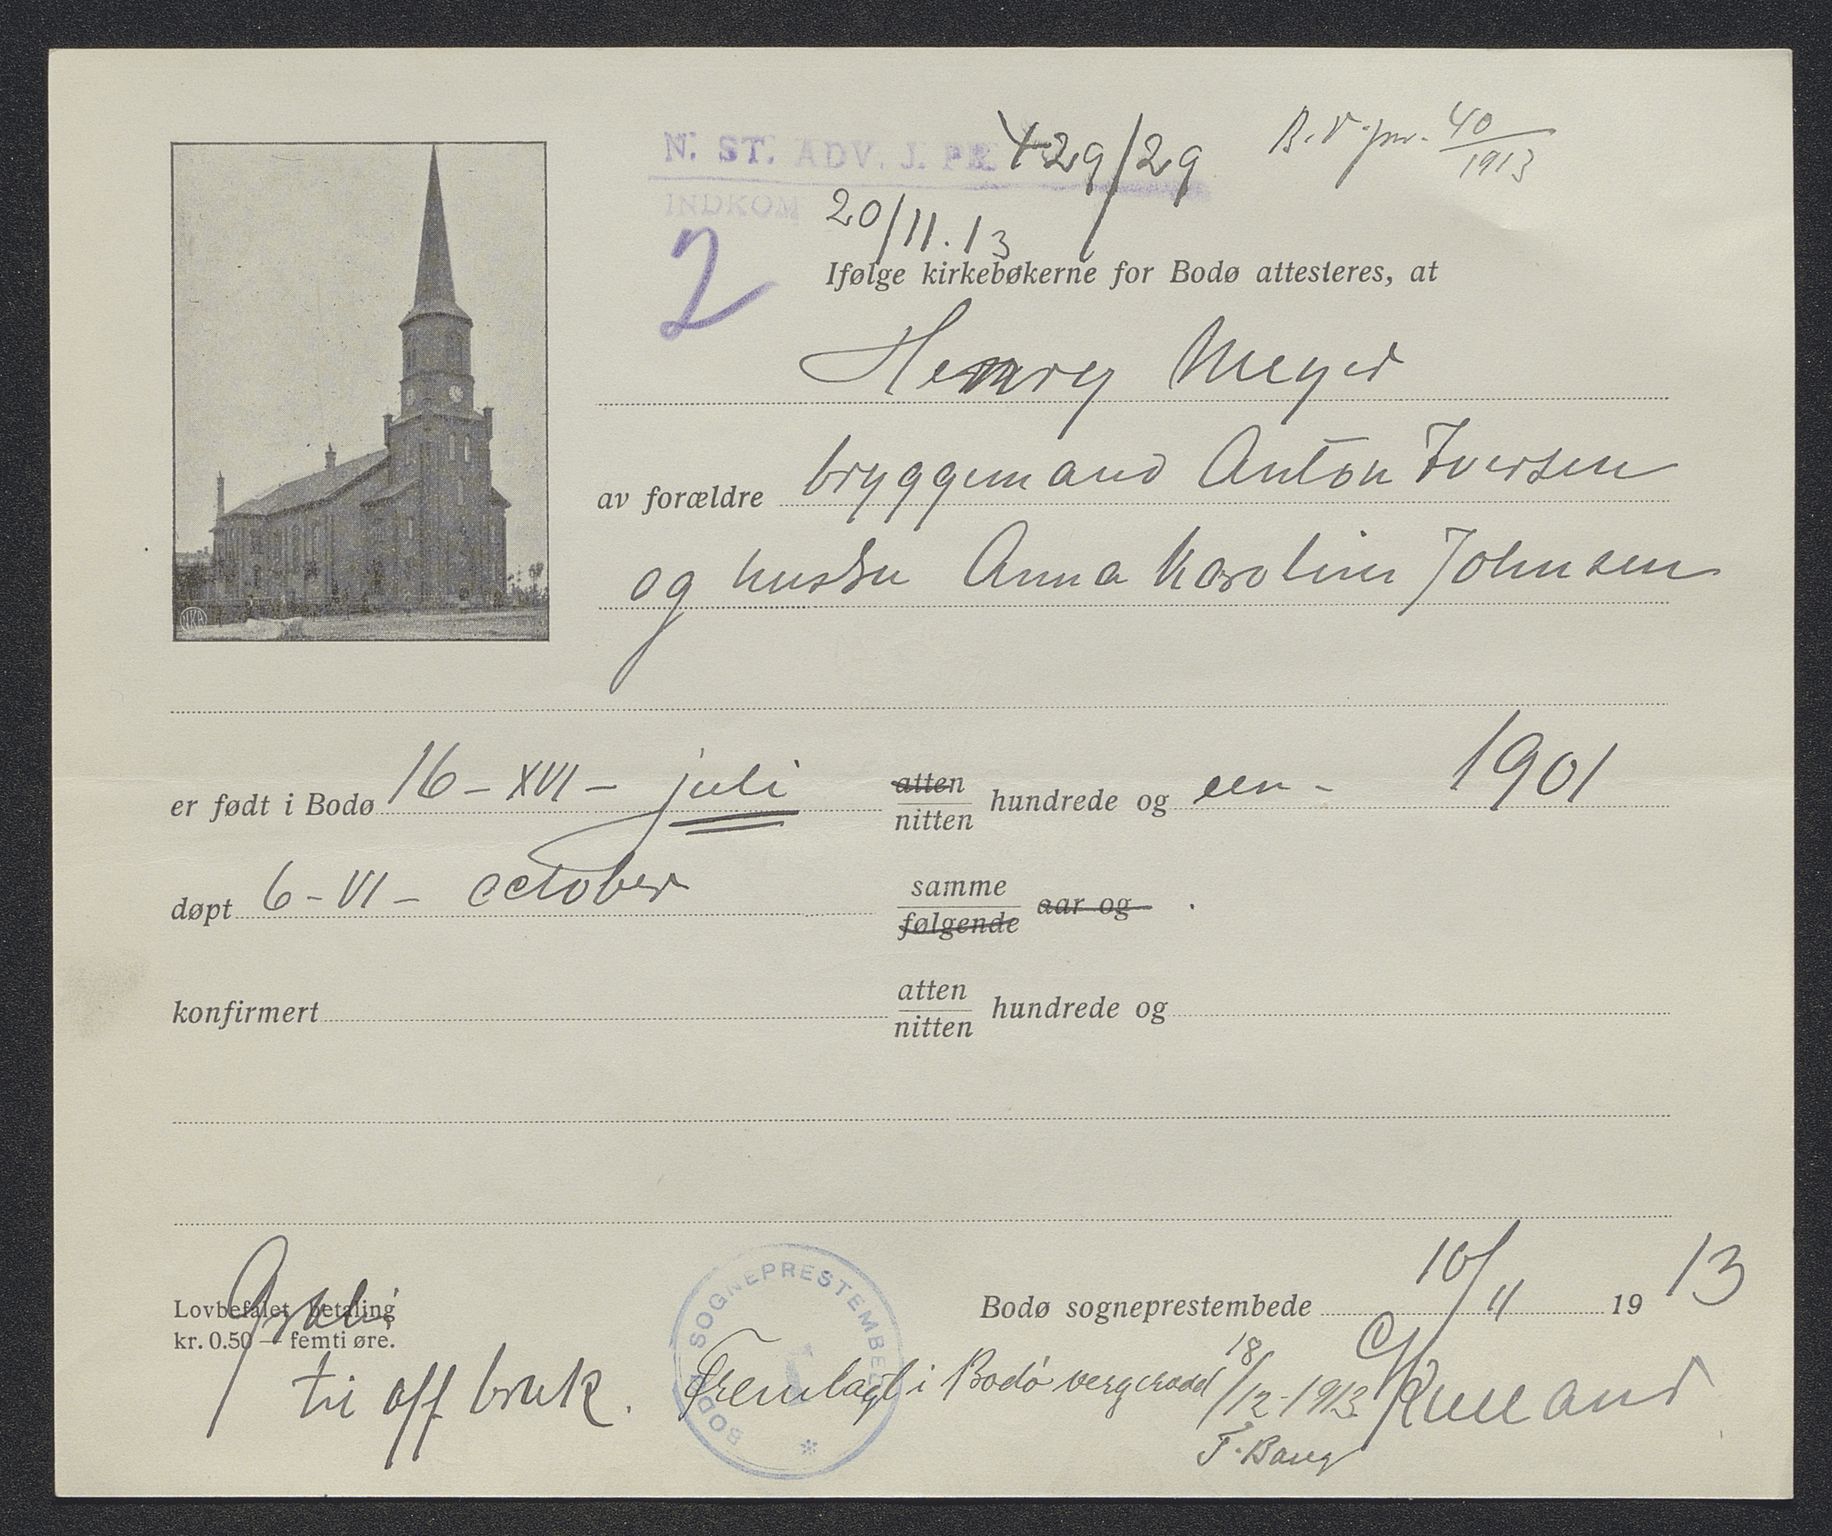 N. ST. ADV. J. 429/29
B.V. jnr. 40/1913
INDKOM 20/11.13
2
Ifølge kirkebøkerne for Bodø attesteres, at
Henry Meyer
av forældre bryggemand Anton Iversen
og hustru Anna Karoline Johnsen
er født i Bodø 16 – XVI – juli atten nitten hundrede og een – 1901
døpt 6 – VI – october samme følgende aar og .
konfirmert atten nitten hundrede og
Bodø sogneprestembede 10/11 1913
Lovbefalet betaling
kr. 0.50 — femti øre.
Gratis
til off bruk.
BODØ SOGNEPRESTEMBEDE
Fremlagt i Bodø vergeraad 18/12-1913